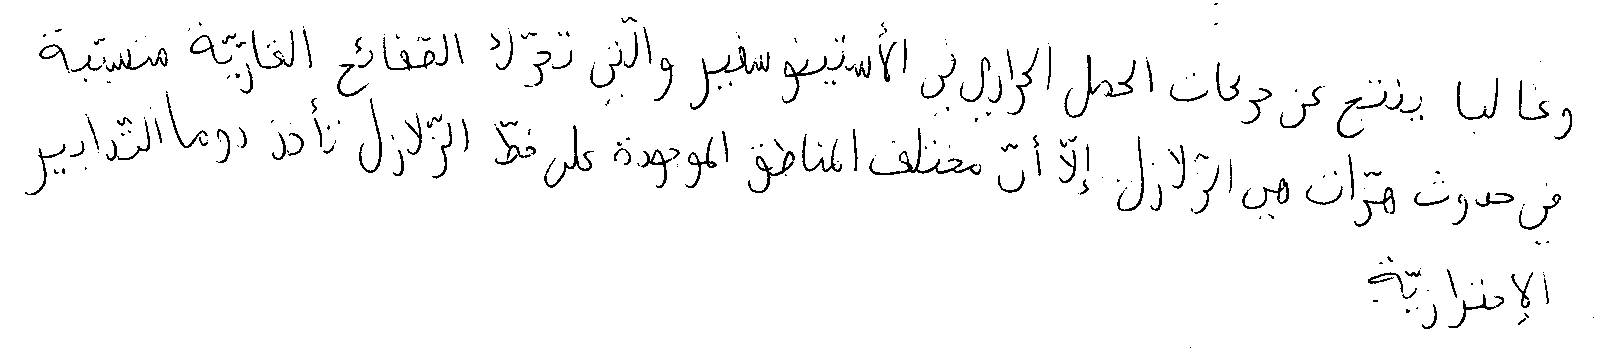 وغالبا ينتج عن حركات الحمل الحراري في الأستينوسفير والّتي تحرّك الصّفائح القارّيّة متسبّبة
في حدوث هزّات هي الزّلازل. إلّا أنّ مختلف المناطق الموجودة على خطّ الزّلازل تأخذ دوما التّدابير
الإحترازيّة